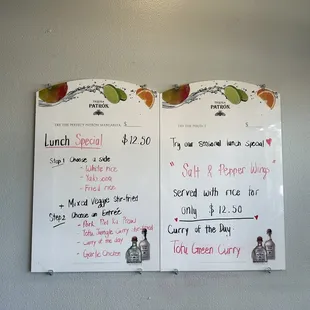 tequila
PATRÓN
TRY THE PERFECT PATRÓN MARGARITA $
Lunch Special $12.50
Step 1 Choose a side
- White rice
- Yakisoba
- Fried rice
+ Mixed Veggie Stir-fried
Step 2 Choose an Entrée
- Pork
- Tofu Jungle Curry
- Curry of the day
- Garlic Chicken
tequila
PATRÓN
TRY THE PERFECT $
Try our seasonal lunch Special
"Salt & Pepper Wings"
served with rice for
only $12.50
Curry of the Day:
Tofu Green Curry